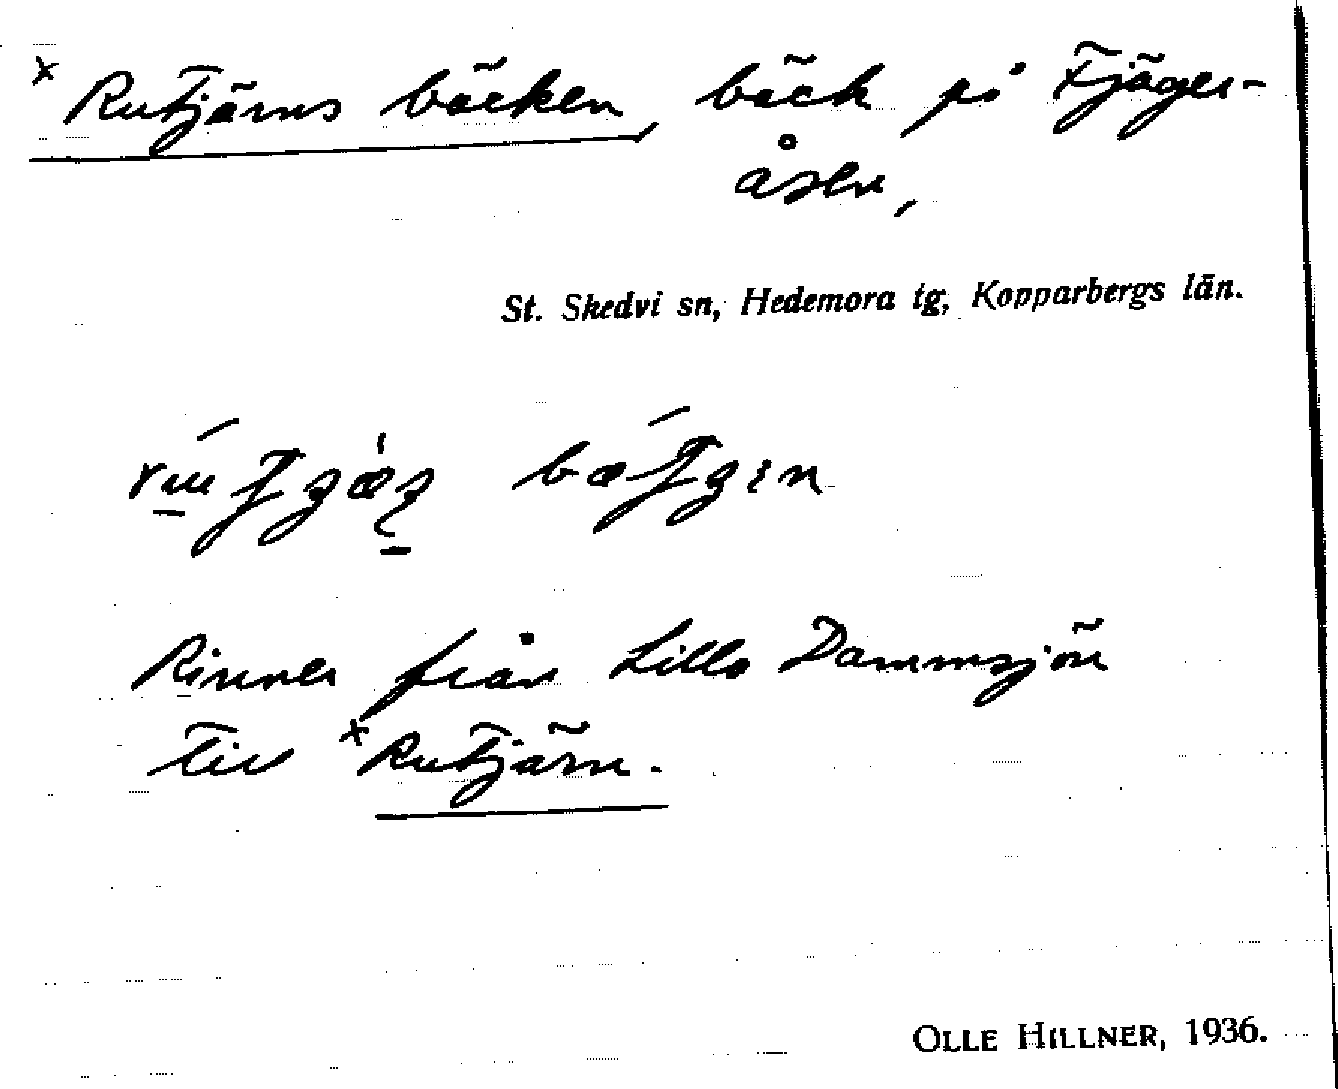 x Rutjärns bäcken, bäck på Fjäger-
åsen,
St. Skedvi sn, Hedemora tg, Kopparbergs län.
Rinner från Lilla Dammsjön
till x Rutjärn.
OLLE HILLNER, 1936.